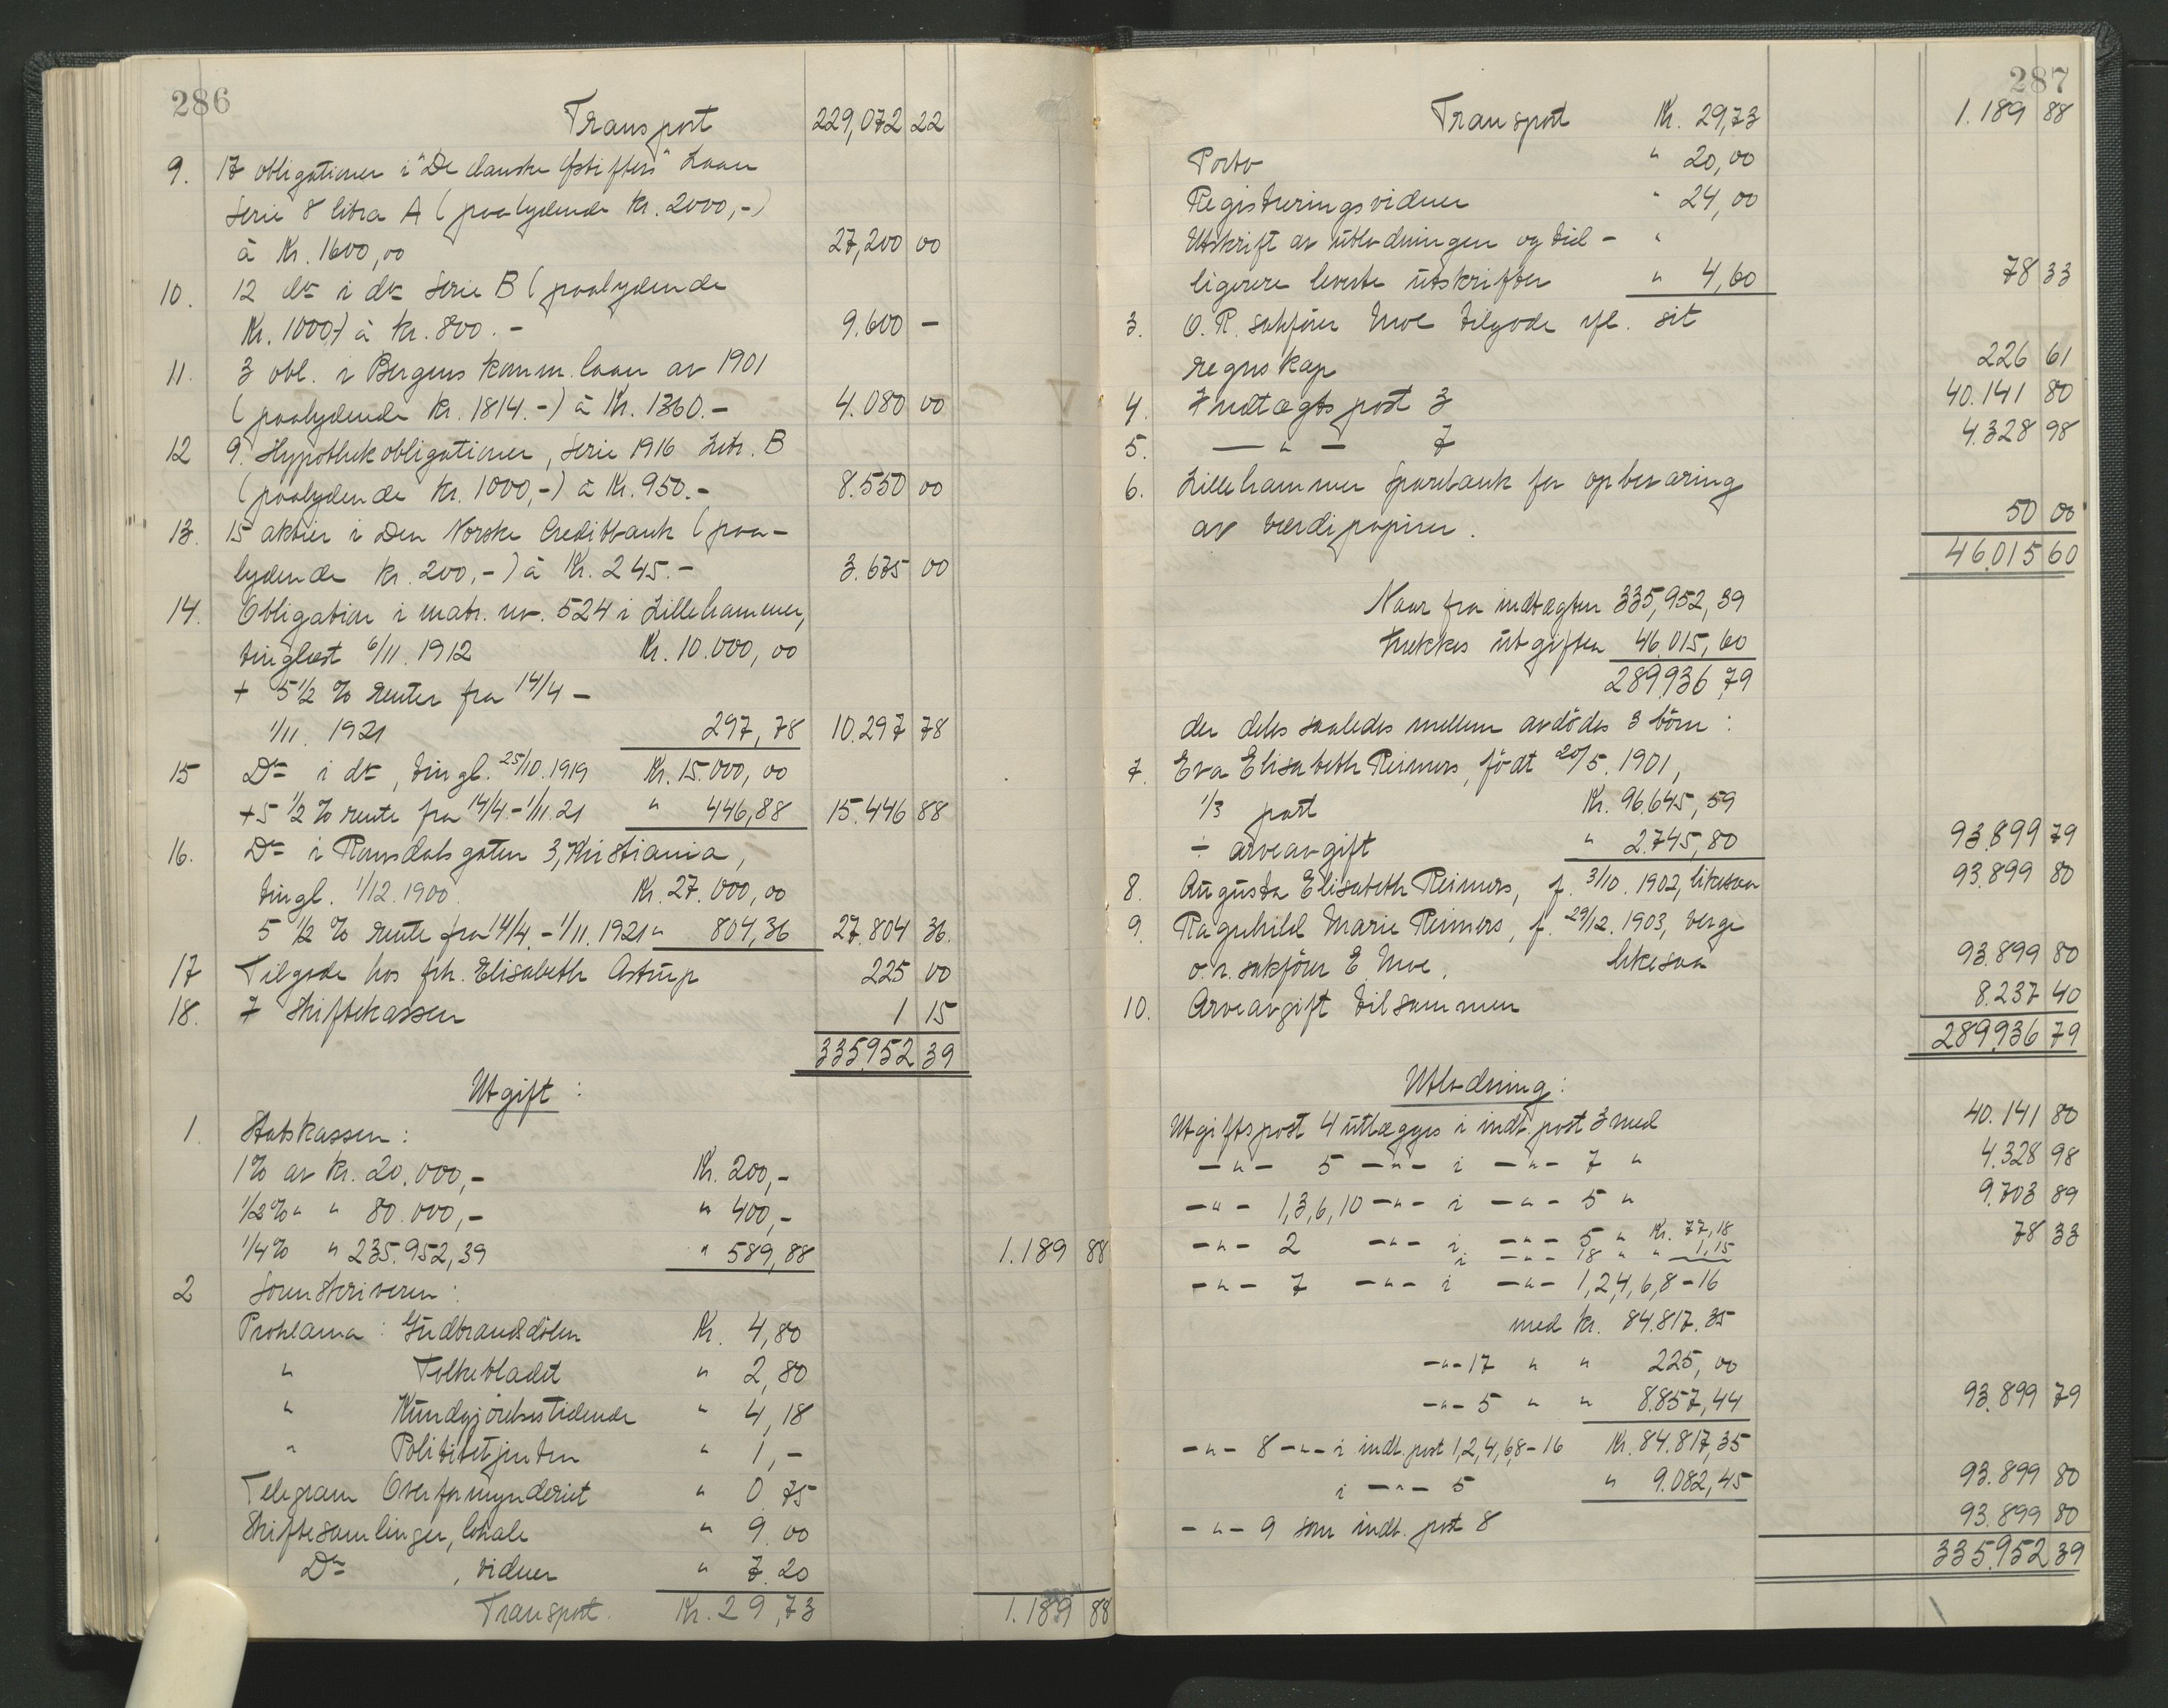 286
Transport 229,072 22
9. 17 obligationer i "De danske Østifters" Laan
Serie 8 litra A (paalydende kr. 2000,-)
à Kr. 1600,00 27,200 00
10. 12 do i do Serie B (paalydende
Kr. 1000,-) à kr. 800.- 9.600 -
11. 3 obl. i Bergens komm. laan av 1901
(paalydende kr. 1814.-) à Kr. 1360.- 4.080 00
12 9. Hypothekobligationer, Serie 1916 Litr. B
(paalydende kr. 1000,-) à Kr. 950.- 8.550 00
13. 15 aktier i Den Norske Creditbank (paa-
lydende kr. 200,-) à Kr. 245.- 3.675 00
14. Obligation i matr. nr. 524 i Lillehammer,
tinglæst 6/11. 1912 Kr. 10.000,00
+ 5 1/2 % renter fra 14/4 -
1/11. 1921 297,78 10.297 78
15 Do i do, tingl. 25/10.1919 Kr. 15.000,00
+5 1/2 % rente fra 14/4-1/11.21 " 446,88 15.446 88
16. Do i Romsdalsgaten 3, Kristiania,
tingl. 1/12.1900. Kr. 27.000,00
5 1/2 % rente fra 14/4.-1/11.1921 " 804,36 27.804 36.
17 Tilgode hos frk. Elisabeth Astrup 225 00
18. I Skiftekassen 1 15
335952 39
Utgift:
1. Statskassen:
1% av kr. 20.000,- Kr. 200,-
1/2% " " 80.000,- " 400,-
1/4% " 235.952,39 " 589,88 1.189 88
2 Sorenskriveren:
Proklama: Gudbrandsdølen Kr. 4,80
" Folkebladet " 2,80
" Kundgjørelsestidende " 4,18
" Politibetjenten " 1,-
Telegram Overformynderiet " 0 75
Skiftesamlinger, lokale " 9 00
Do , vidner " 7.20
Transport. Kr. 29,73 1.189 88
287
Transport Kr. 29,73 1.189 88
Porto " 20,00
Registreringsvidner " 24,00
Utskrift av utlodningen og tid- "
ligere leverte utskrifter " 4,60 78 33
3. O. R. sakfører Moe tilgode ifl. sit
regnskap 226 61
4. Indtægtspost 3 40.141 80
5. — " — 7 4.328 98
6. Lillehammer Sparebank for opbevaring
av værdipapirer. 50 00
46.015 60
Naar fra indtægten 335,952,39
trekkes utgiften 46.015,60
289.936,79
der deles saaledes mellem avdødes 3 børn:
7. Eva Elisabeth Reimers, født 20/5. 1901,
1/3 part Kr. 96.645,59
÷ arveavgift " 2.745,80 93.899 79
8. Augusta Elisabeth Reimers, f. 3/10. 1902, likesaa 93.899 80
9. Ragnhild Marie Reimers, f. 29/12. 1903, verge
o.r. sakfører E. Moe. likesaa 93.899 80
10. Arveavgift tilsammen 8.237 40
289.936 79
Utlodning:
Utgiftspost 4 utlægges i indt. post 3 med 40.141 80
-"- 5 -"- i -"- 7 " 4.328 98
-"- 1,3,6,10 -"- i -"- 5 " 9.703 89
-"- 2 -"- i -"- 5 " Kr. 77,18 78 33
i -"- 18 " " 1,15
-"- 7 -"- i -"- 1,2,4,6,8-16
med kr. 84.817.35
-"- 17 " " 225,00
-"- 5 " " 8.857,44 93.899 79
-"- 8 -"- i indt. post 1,2,4,6,8-16 Kr. 84.817,35
i -"- 5 " 9.082,45 93.899 80
-"- 9 som indt. post 8 93.899 80
335.952 39